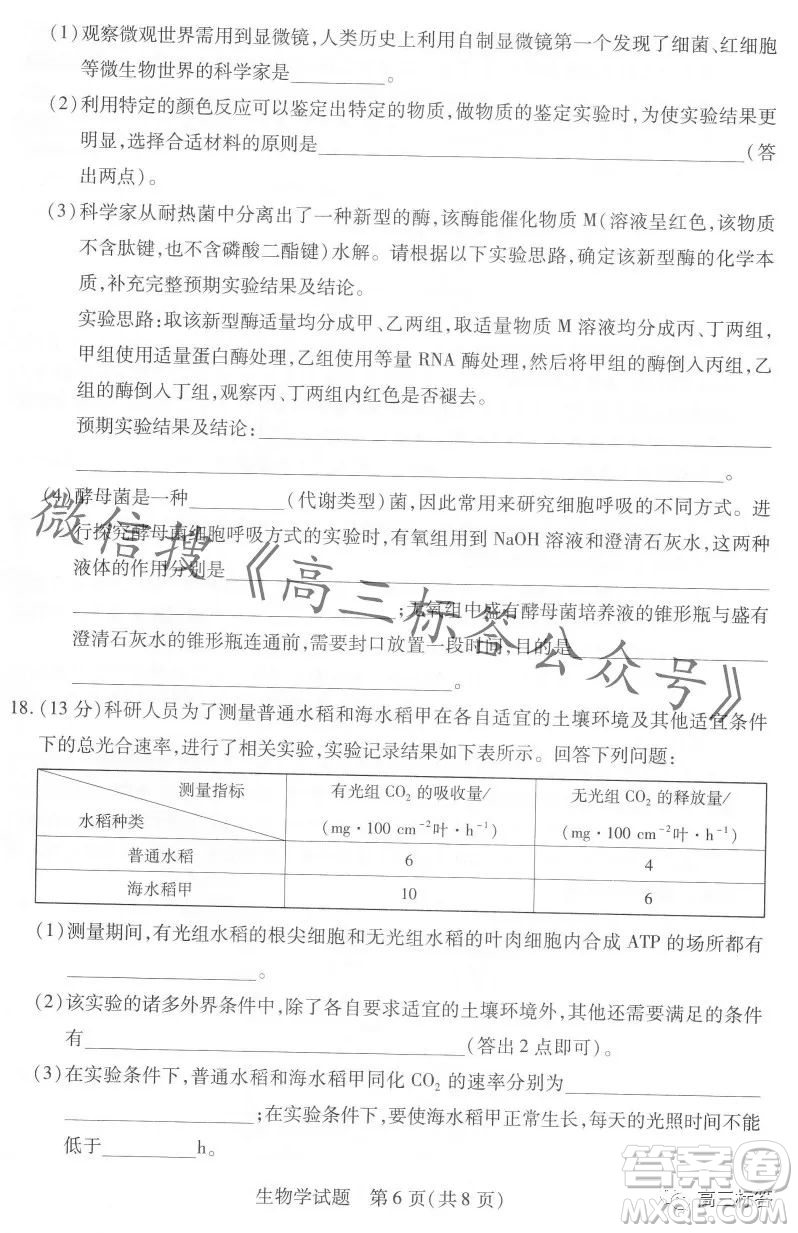 (1)观察微观世界需用到显微镜,人类历史上利用自制显微镜第一个发现了细菌、红细胞
等微生物世界的科学家是________。
(2)利用特定的颜色反应可以鉴定出特定的物质,做物质的鉴定实验时,为使实验结果更
明显,选择合适材料的原则是________(答
出两点)。
(3)科学家从耐热菌中分离出了一种新型的酶,该酶能催化物质 M(溶液呈红色,该物质
不含肽键,也不含磷酸二酯键)水解。请根据以下实验思路,确定该新型酶的化学本
质,补充完整预期实验结果及结论。
实验思路:取该新型酶适量均分成甲、乙两组,取适量物质 M 溶液均分成丙、丁两组,
甲组使用适量蛋白酶处理,乙组使用等量 RNA 酶处理,然后将甲组的酶倒入丙组,乙
组的酶倒入丁组,观察丙、丁两组内红色是否褪去。
预期实验结果及结论:________
________。
(4)酵母菌是一种________(代谢类型)菌,因此常用来研究细胞呼吸的不同方式。进
行探究酵母菌细胞呼吸方式的实验时,有氧组用到 NaOH 溶液和澄清石灰水,这两种
液体的作用分别是________
________;无氧组中盛有酵母菌培养液的锥形瓶与盛有
澄清石灰水的锥形瓶连通前,需要封口放置一段时间,目的是________
________。
18.(13 分)科研人员为了测量普通水稻和海水稻甲在各自适宜的土壤环境及其他适宜条件
下的总光合速率,进行了相关实验,实验记录结果如下表所示。回答下列问题:
测量指标
水稻种类
有光组 CO₂ 的吸收量/
(mg·100 cm⁻²叶·h⁻¹)
无光组 CO₂ 的释放量/
(mg·100 cm⁻²叶·h⁻¹)
普通水稻 6 4
海水稻甲 10 6
(1)测量期间,有光组水稻的根尖细胞和无光组水稻的叶肉细胞内合成 ATP 的场所都有
________。
(2)该实验的诸多外界条件中,除了各自要求适宜的土壤环境外,其他还需要满足的条件
有________(答出 2 点即可)。
(3)在实验条件下,普通水稻和海水稻甲同化 CO₂ 的速率分别为________
________;在实验条件下,要使海水稻甲正常生长,每天的光照时间不能
低于________h。
生物学试题 第 6 页(共 8 页)
微信搜《高三标答公众号》
答案卷
高三标答